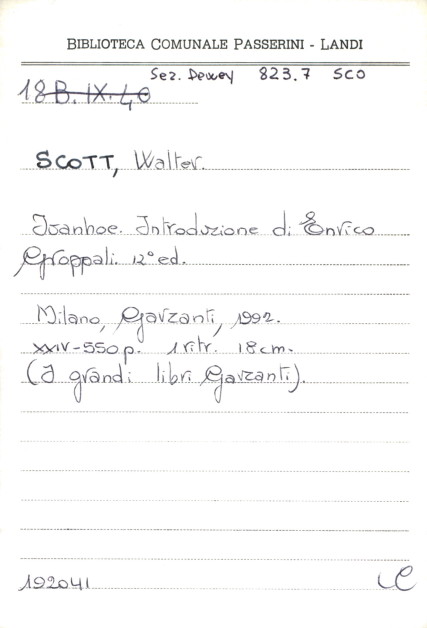 BIBLIOTECA COMUNALE PASSERINI - LANDI
Sez. Dewey 823.7 SCO
18 B. IX. 40
SCOTT, Walter.
Ivanhoe. Introduzione di Enrico
Groppali. 12° ed.
Milano, Garzanti, 1992.
XXIV-550 p. 1 ritr. 18 cm.
(I grandi libri Garzanti).
192041